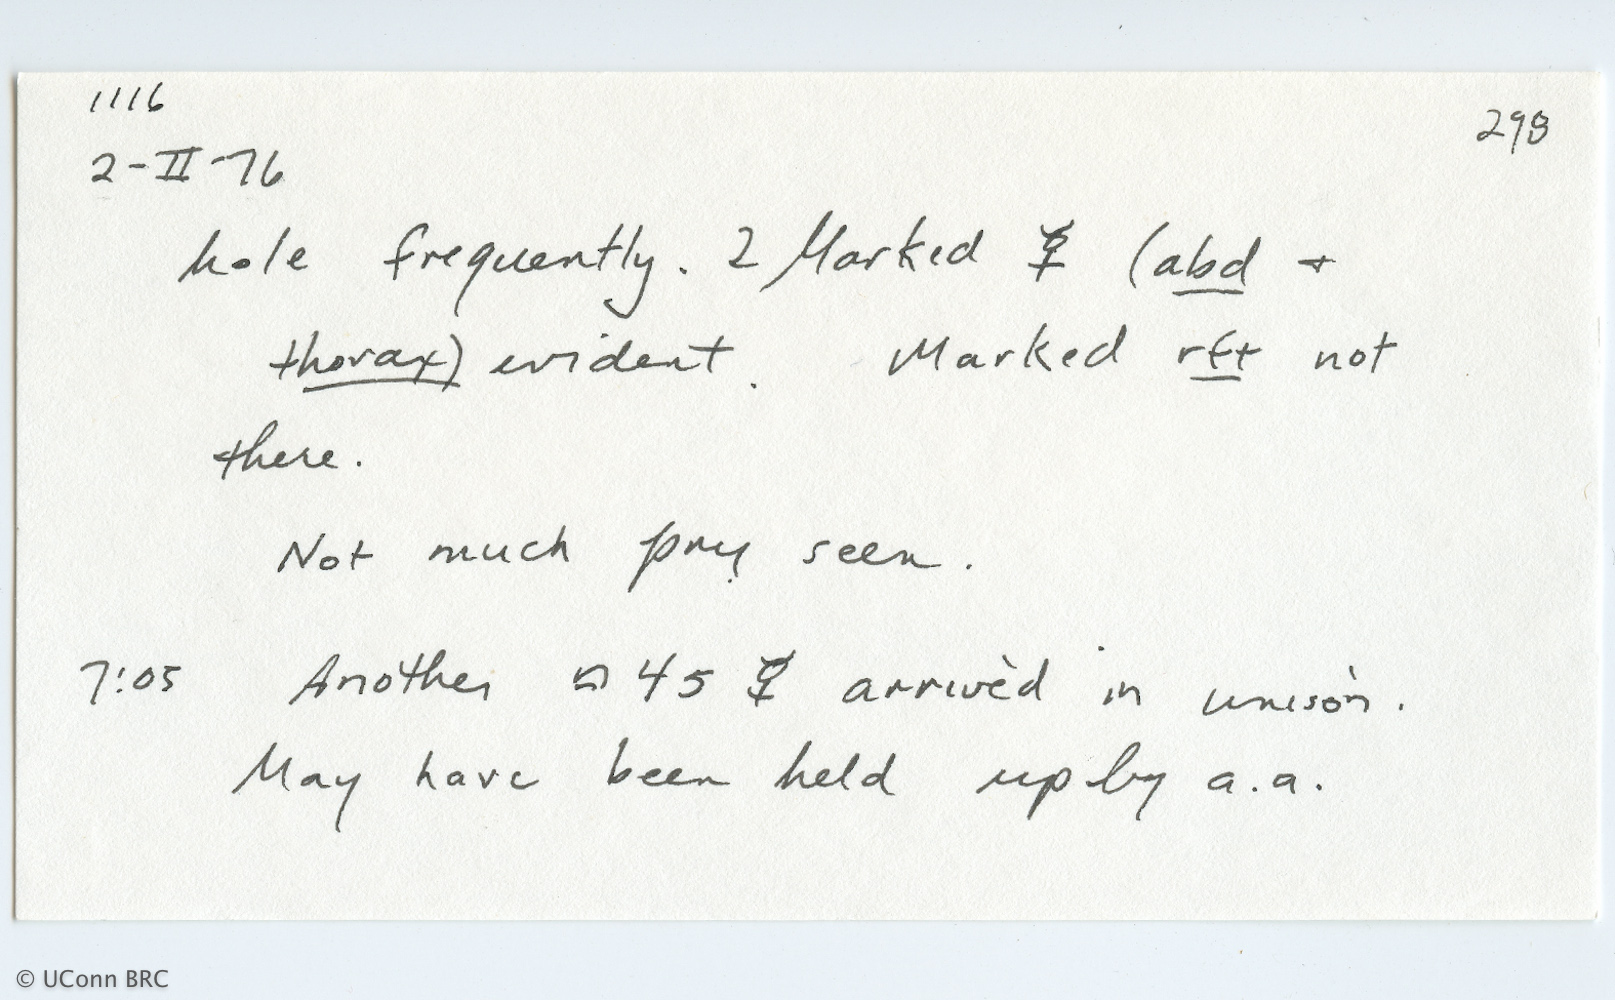 1116
298
2-II-76
hole frequently. 2 Marked ☿ (abd +
thorax) evident. Marked not
there.
Not much prey seen.
7:05 Another 45 ☿ arrived in unison.
May have been held up by a.a.
© UConn BRC